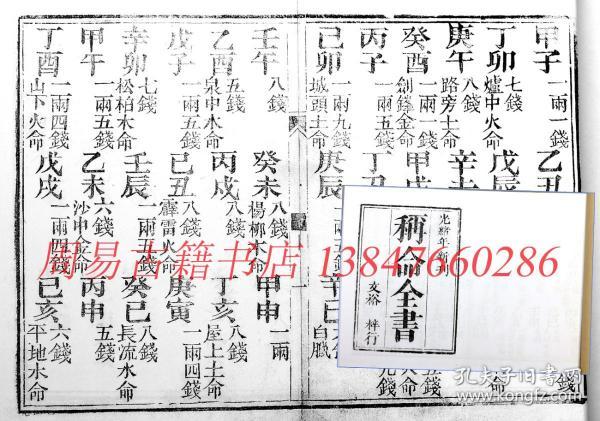 甲子 一兩一錢 乙丑
丁卯 七錢 爐中火命 戊辰
庚午 八錢 路旁土命 辛未
癸酉 一兩一錢 劍鋒金命 甲戌
丙子 一兩五錢 丁丑
己卯 一兩九錢 城頭土命 庚辰 一兩五錢 辛巳 白臘
壬午 八錢 癸未 八錢 楊柳木命 甲申 一兩
乙酉 五錢 泉中水命 丙戌 八錢 丁亥 八錢 屋上土命
戊子 一兩五錢 己丑 八錢 霹靂火命 庚寅 一兩四錢
辛卯 七錢 松柏木命 壬辰 一兩五錢 癸巳 八錢 長流水命
甲午 一兩五錢 乙未 六錢 沙中金命 丙申 五錢
丁酉 一兩四錢 山下火命 戊戌 一兩四錢 己亥 六錢 平地木命
光緒年新刊
稱命全書
友裕 梓行
周易古籍书店 13847660286
孔夫子旧书网